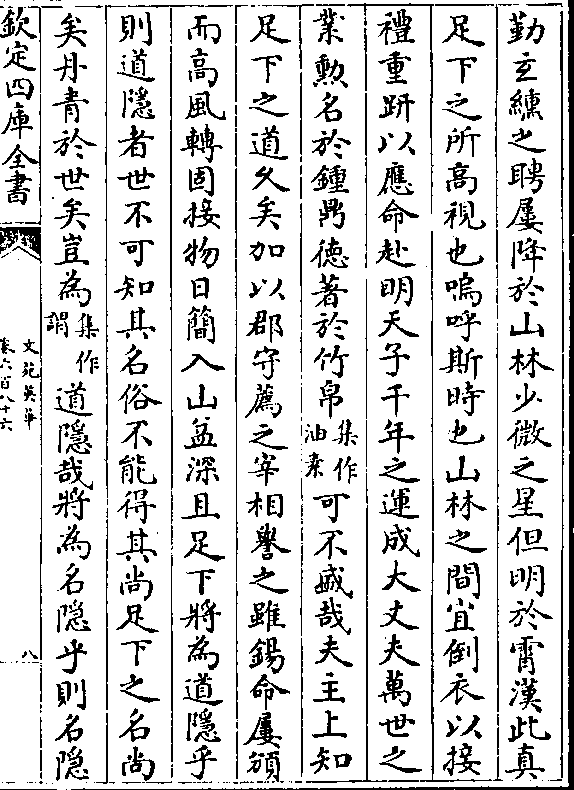 勤玄纁之聘屢降於山林少微之星但明於霄漢此真
足下之所高視也嗚呼斯時也山林之間宜倒衣以接
禮重趼以應命赴明天子千年之運成大丈夫萬世之
業勲名於鍾鼎德著於竹帛集作油素可不盛哉夫主上知
足下之道久矣加以郡守薦之宰相譽之雖錫命屢頒
而高風轉固接物日簡入山益深且足下將為道隱乎
則道隱者世不可知其名俗不能得其尚足下之名尚
矣丹青於世矣豈為集作謂道隱哉將為名隱乎則名隱
欽定四庫全書
文苑英華
卷六百八十六
八